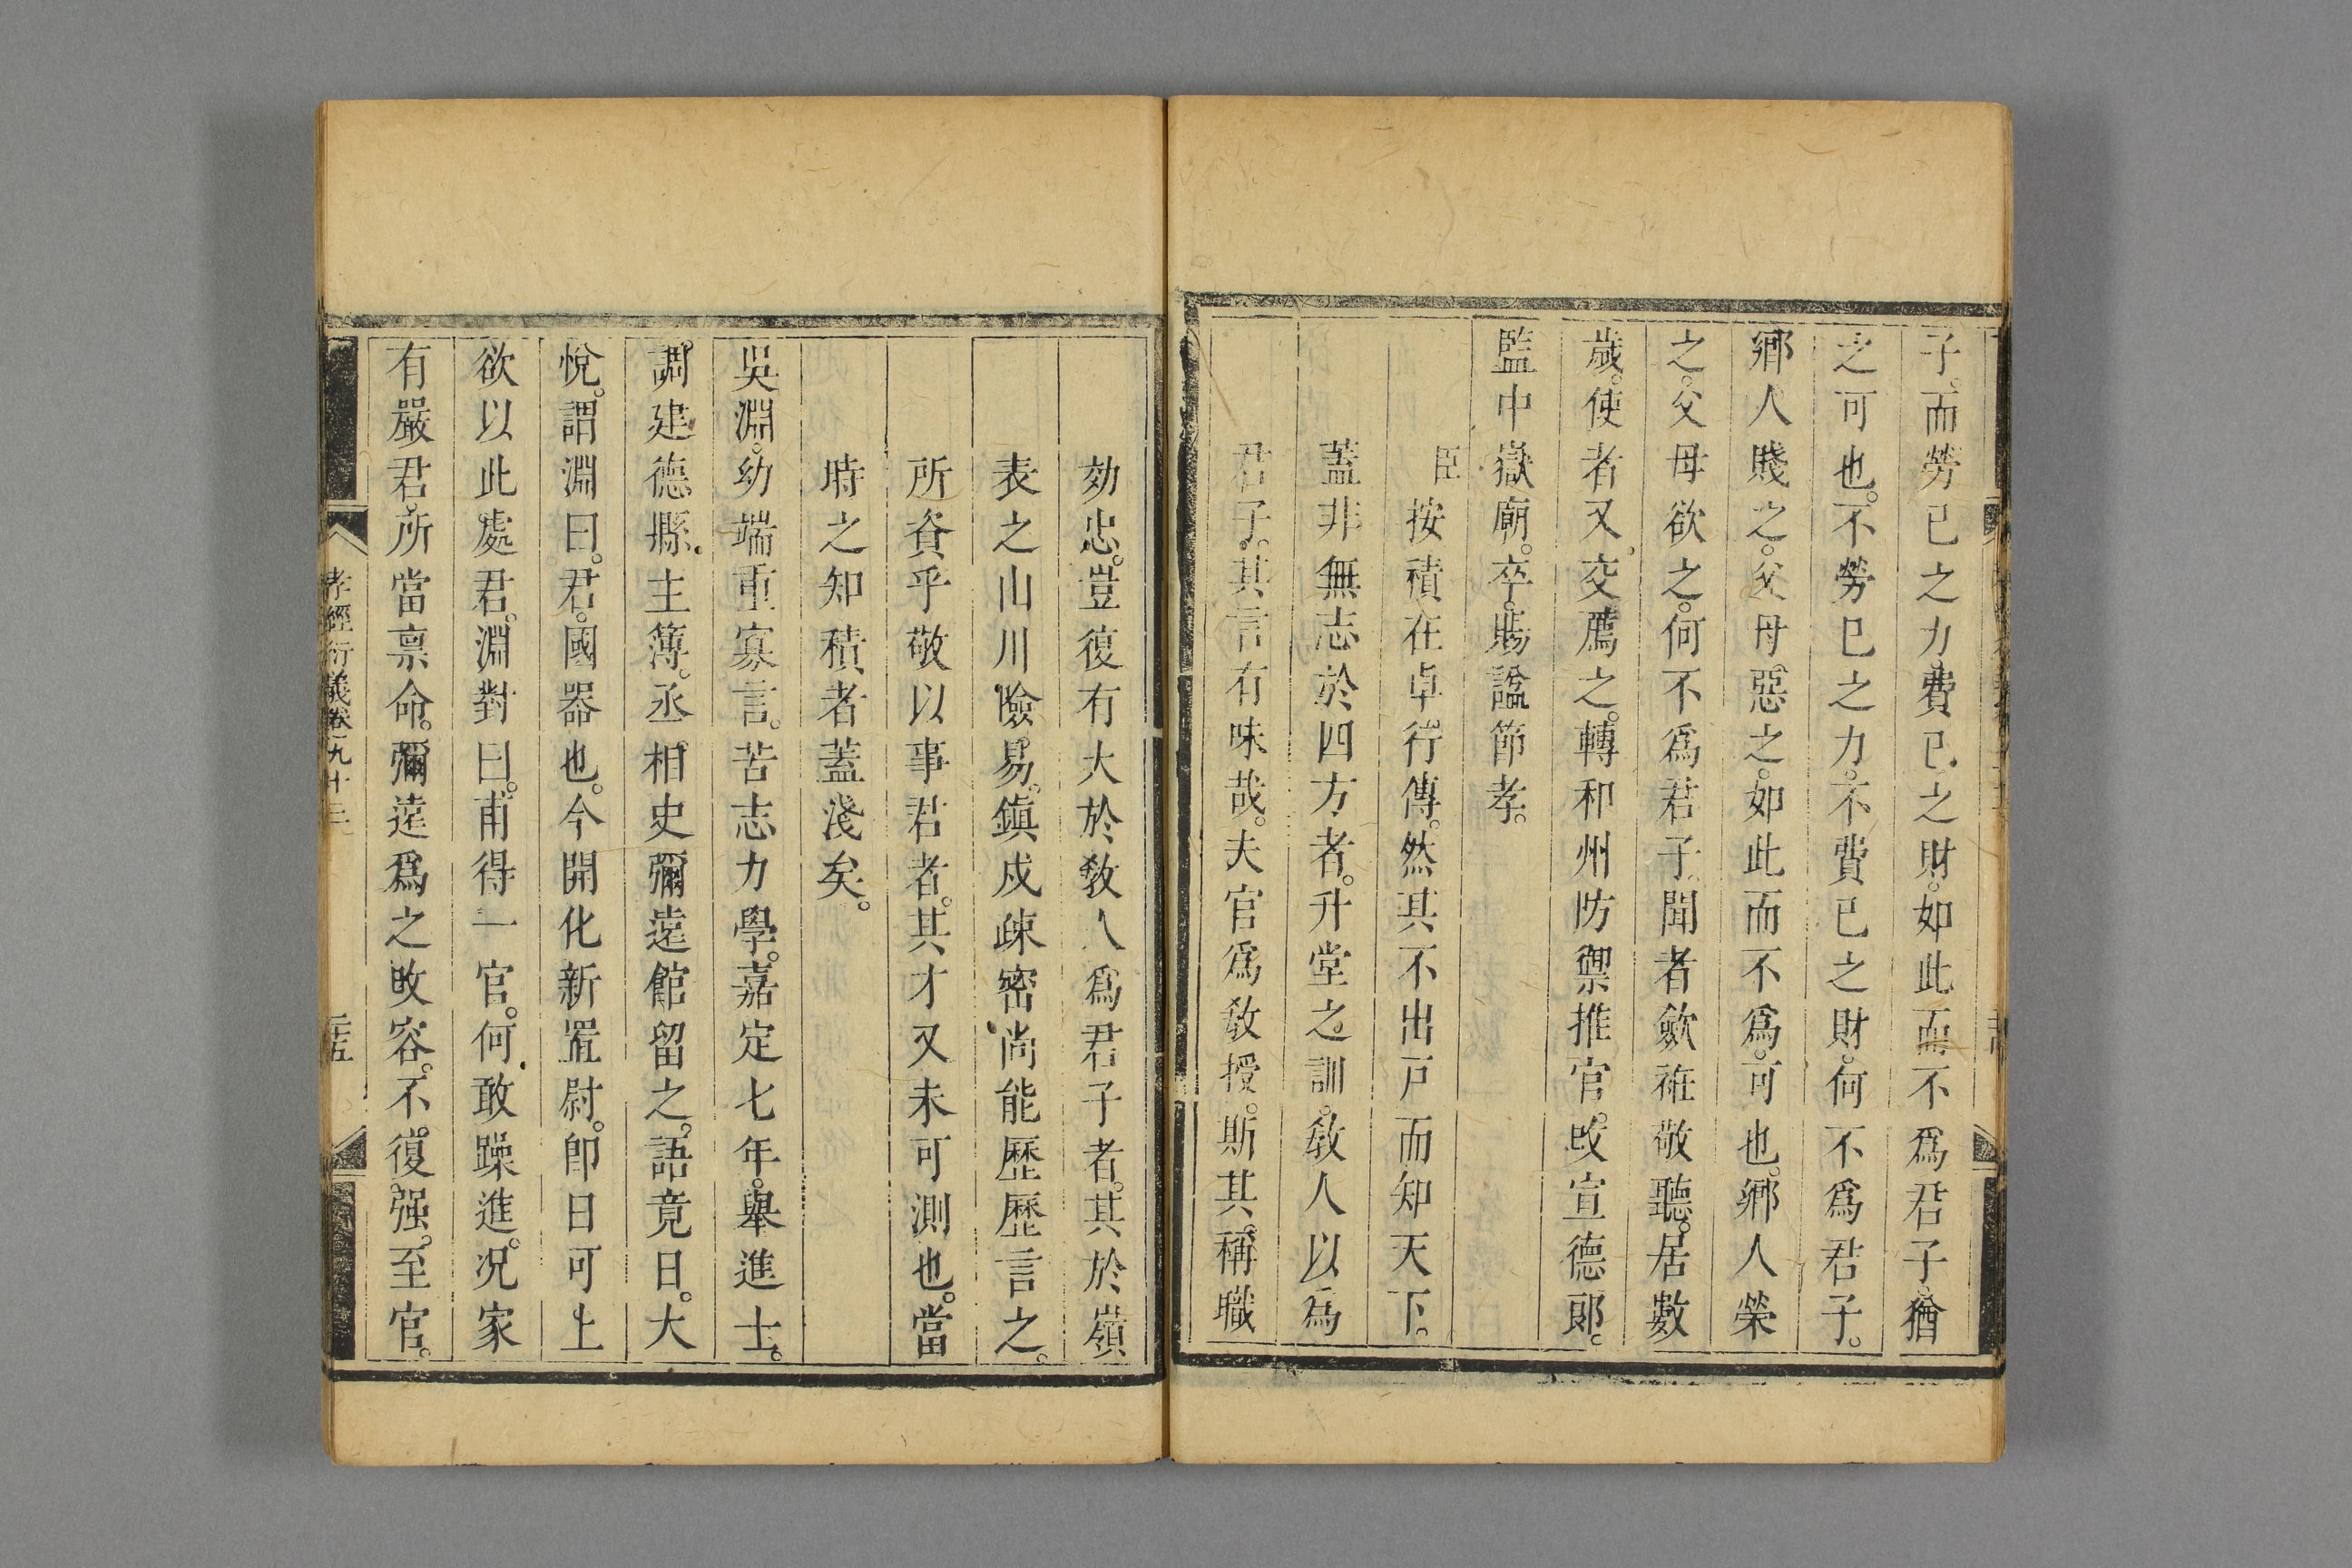 子。而勞己之力。費己之財。如此而不爲君子。猶
之可也。不勞己之力。不費己之財。何不爲君子。
鄉人賤之。父母惡之。如此而不爲。可也。鄉人榮
之。父母欲之。何不爲君子。聞者歛袵敬聽。居數
歲。使者又交薦之。轉和州防禦推官。改宣德郎。
監中嶽廟。卒。賜諡節孝。
臣按積在卓行傳。然其不出戸而知天下。
蓋非無志於四方者。升堂之訓。敎人以爲
君子。其言有味哉。夫官爲敎授。斯其稱職
効忠。豈復有大於敎人爲君子者。其於嶺
表之山川險易。鎮戍疎密。尚能歷歷言之。
所資乎敬以事君者。其才又未可測也。當
時之知積者蓋淺矣。
吳淵。幼端重寡言。苦志力學。嘉定七年。舉進士。
調建德縣主簿。丞相史彌遠館留之。語竟日。大
悅。謂淵曰。君。國器也。今開化新置尉。卽日可上
欲以此處君。淵對曰。甫得一官。何敢躁進。况家
有嚴君。所當禀命。彌遠爲之改容。不復强。至官。
孝經衍義卷九十三
二十五